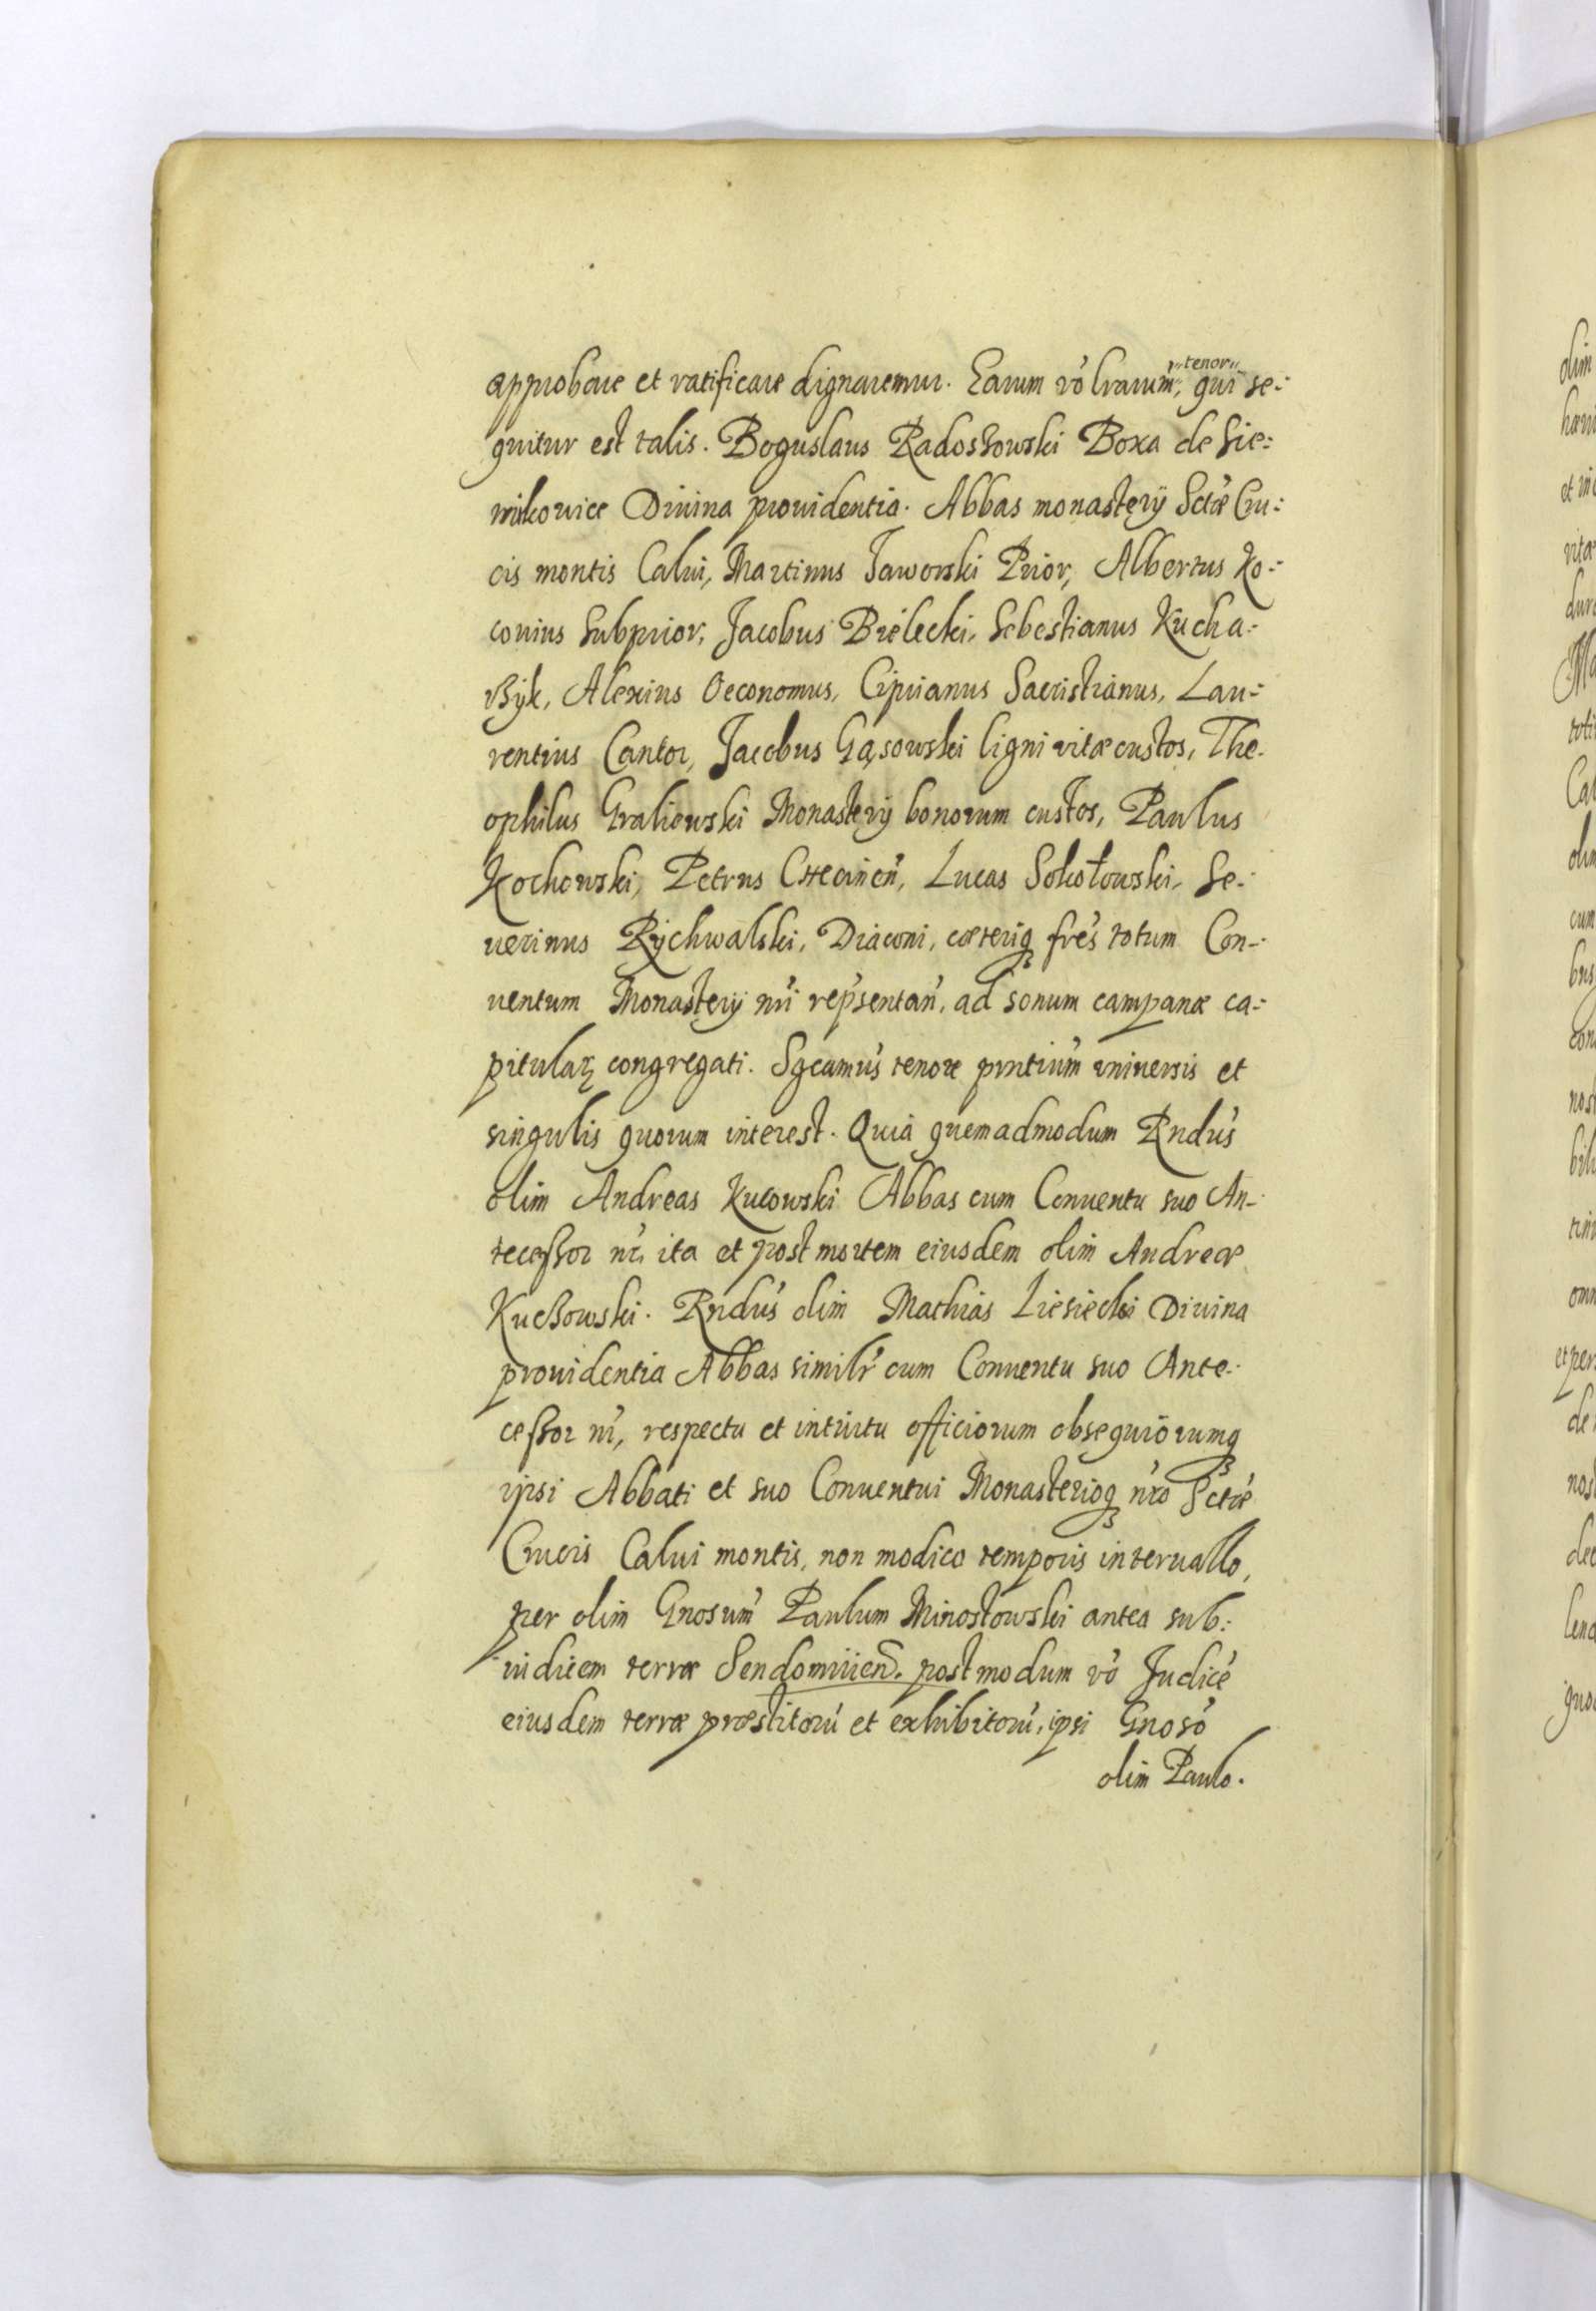 approbare et ratificare dignaremur. Earum vo' lrarum', "tenor" qui se-:
quitur est talis. Boguslaus Radoszowski Boxa de Sie:
mikowice Diuina prouidentia. Abbas monasterÿ Sctæ Cru:
cis montis Calui, Martinus Jaworski Prior, Albertus Ko-:
conius Subprior, Jacobus Bielecki, Sebestianus Kucha-:
rßÿk, Alexius Oeconomus, Ciprianus Sacristianus, Lau-:
rentius Cantor, Jacobus Gąsowski ligni vitæ custos, The-
ophilus Graliewski Monasterÿ bonorum custos, Paulus
Kochowski, Petrus Checinen', Lucas Sokołowski, Se-:
uerinus Rÿchwalski, Diaconi, cæteriq3 fre's totum Con-:
uentum Monasterÿ nri' rep'sentan', ad sonum campanæ ca-:
pitularem congregati. Sgcamu's tenore pntium' vniuersis et
singulis quorum interest. Quia quemadmodum Rndu's
olim Andreas Kucowski Abbas cum Conuentu suo An-:
tecessor nr', ita et post mortem eiusdem olim Andreæ
Kucßowski. Rndu's olim Mathias Liesiecki Diuina
prouidentia Abbas similr' cum Conuentu suo Ante-:
cessor nr', respectu et intuitu officiorum obsequiorumq3
ipsi Abbati et suo Conuentui Monasterioq3 nr'o Sctæ
Crucis Calui montis, non modico temporis interuallo,
per olim Gnosum' Paulum Minostowski antea sub:
iudicem terræ Sendomirien. postmodum vo' Judice'
eiusdem terræ præstitoru' et exhibitoru', ipsi Gnoso'
olim Paulo.